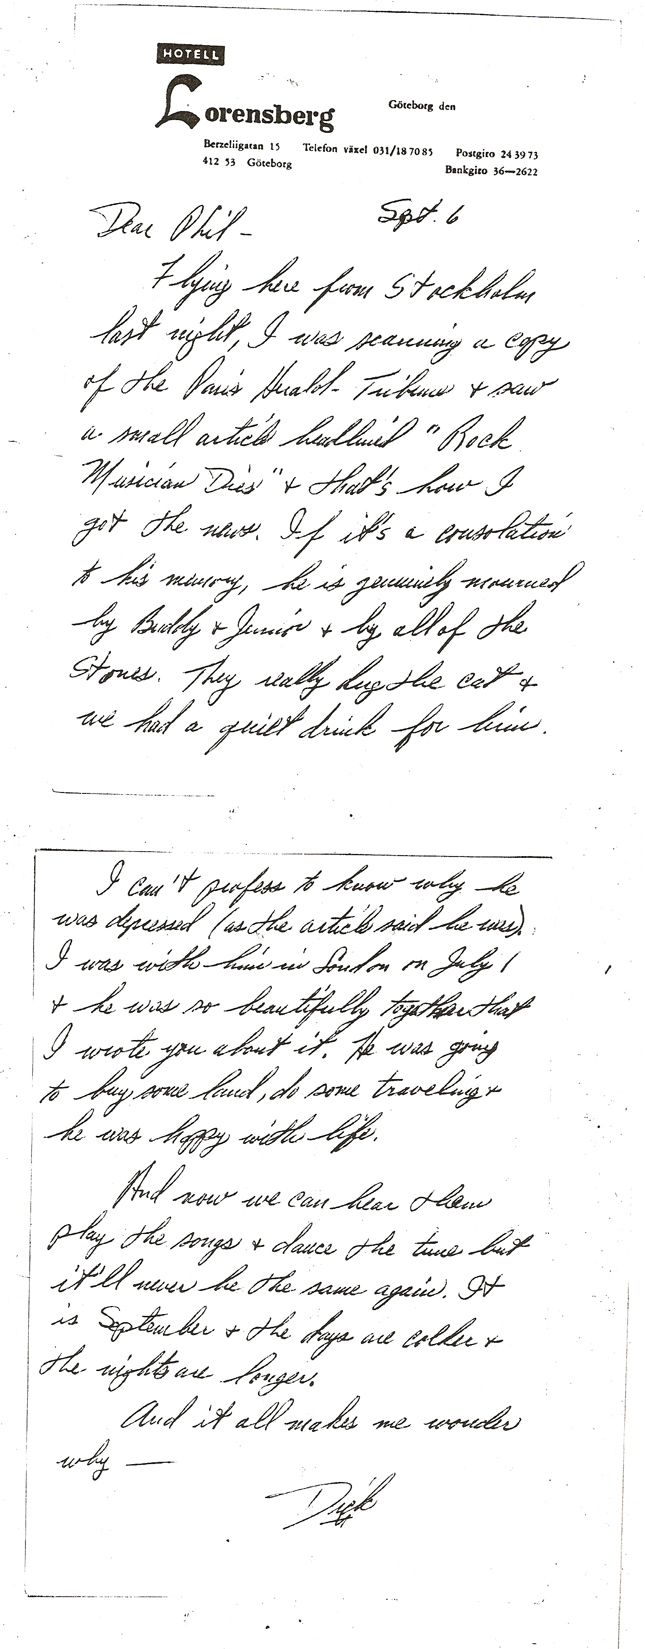 HOTELL
Lorensberg
Göteborg den
Berzeliigatan 15 Telefon växel 031/18 70 85 Postgiro 24 39 73
412 53 Göteborg Bankgiro 36—2622
Sept. 6
Dear Phil –
Flying here from Stockholm
last night, I was scanning a copy
of the Paris Herald-Tribune & saw
a small article headlined "Rock
Musician Dies" & that's how I
got the news. If it's a consolation
to his memory, he is genuinely mourned
by Buddy & Junior & by all of the
Stones. They really dug the cat &
we had a quiet drink for him.
I can't profess to know why he
was depressed (as the article said he was).
I was with him in London on July 1
& he was so beautifully together that
I wrote you about it. He was going
to buy some land, do some traveling &
he was happy with life.
And now we can hear them
play the songs & dance the tune but
it'll never be the same again. It
is September & the days are colder &
the nights are longer.
And it all makes me wonder
why —
Dick